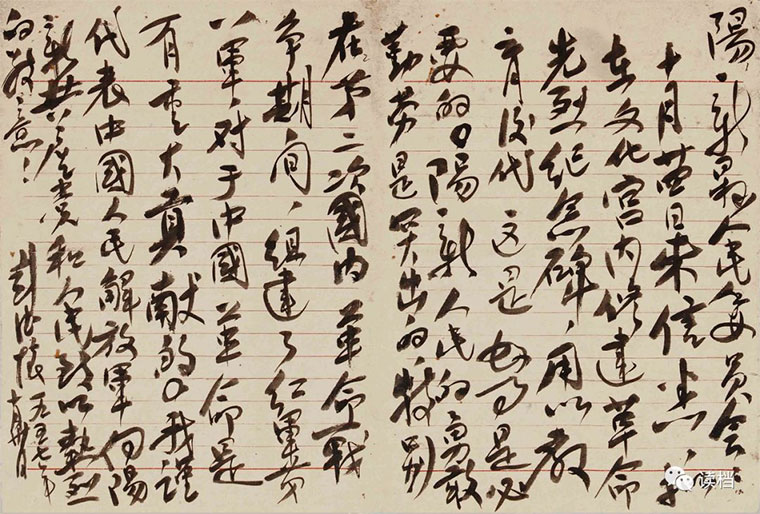 陽新县人民委員会：
十月廿日来信悉，
在文化宫内修建革命
先烈纪念碑，用以教
育后代 这是好的是必
要的。陽新人民的勇敢
勤劳是突出的，特别
在第二次國内革命战
争期间，组建了红軍第
八軍，对于中國革命是
有重大貢献的。我謹
代表中國人民解放軍向陽
新共产党和人民致以熱烈
的敬意！
一九五七年
读档